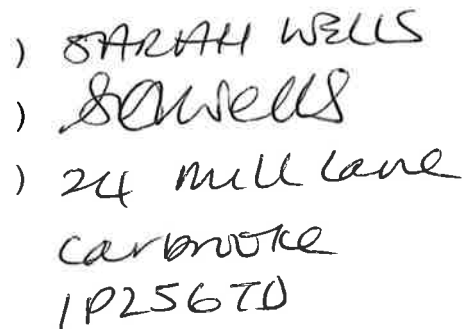 ) SARAH WELLS
) SCWells
) 24 Mill Lane
Carbrooke
IP256TD